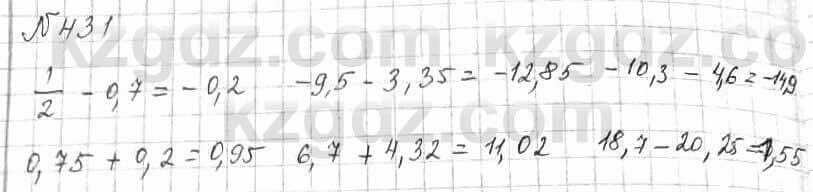 №431
1/2 - 0,7 = -0,2   -9,5 - 3,35 = -12,85   -10,3 - 4,6 = -14,9
0,75 + 0,2 = 0,95   6,7 + 4,32 = 11,02   18,7 - 20,25 = 1,55
kzgdz.com